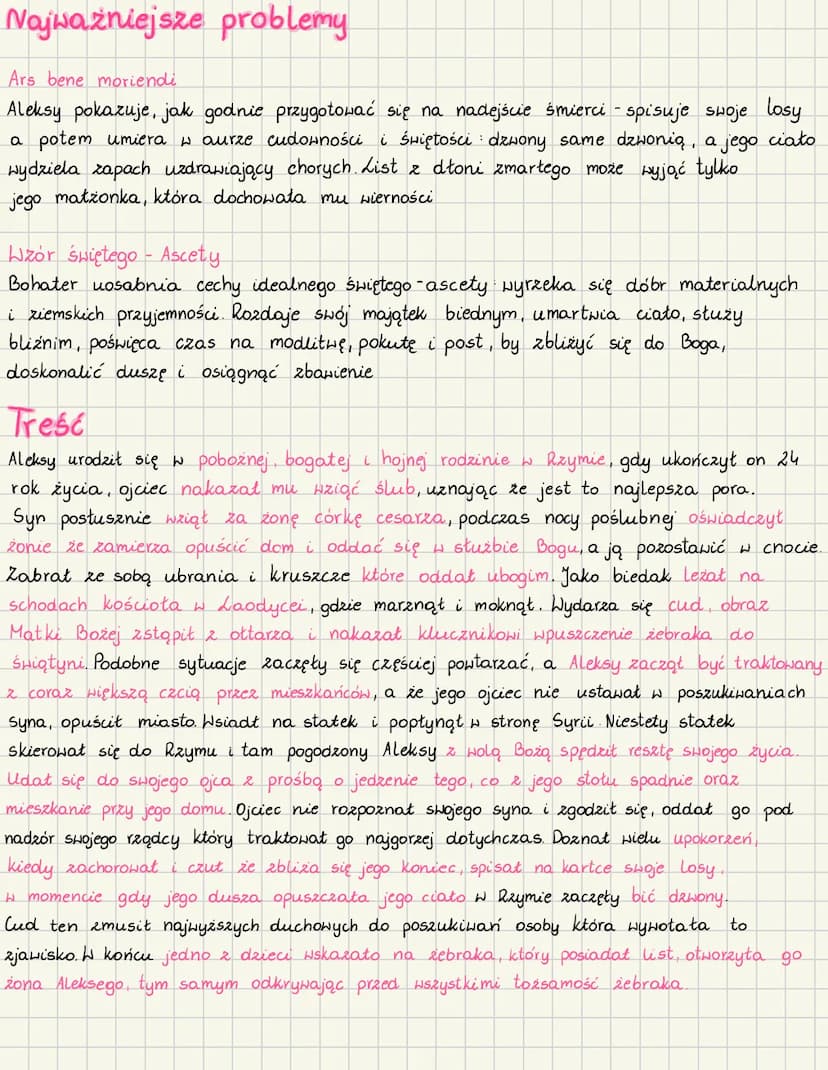 Najważniejsze problemy
Ars bene moriendi
Aleksy pokazuje, jak godnie przygotować się na nadejście śmierci - spisuje swoje losy
a potem umiera w aurze cudowności i świętości : dzwony same dzwonią, a jego ciało
wydziela zapach uzdrawiający chorych. List z dłoni zmarłego może wyjąć tylko
jego małżonka, która dochowała mu wierności
Wzór świętego - Ascety
Bohater uosabnia cechy idealnego świętego - ascety : wyrzeka się dóbr materialnych
i ziemskich przyjemności. Rozdaje swój majątek biednym, umartwia ciało, służy
bliźnim, poświęca czas na modlitwę, pokutę i post, by zbliżyć się do Boga,
doskonalić duszę i osiągnąć zbawienie
Treść
Aleksy urodził się w pobożnej, bogatej i hojnej rodzinie w Rzymie, gdy ukończył on 24
rok życia, ojciec nakazał mu wziąć ślub, uznając że jest to najlepsza pora.
Syn posłusznie wziął za żonę córkę cesarza, podczas nocy poślubnej oświadczył
żonie że zamierza opuścić dom i oddać się w służbie Bogu, a ją pozostawić w cnocie.
Zabrał ze sobą ubrania i kruszcze które oddał ubogim. Jako biedak leżał na
schodach kościoła w Laodycei, gdzie marznął i moknął. Wydarza się cud, obraz
Matki Bożej zstąpił z ołtarza i nakazał klucznikowi wpuszczenie żebraka do
świątyni. Podobne sytuacje zaczęły się częściej powtarzać, a Aleksy zaczął być traktowany
z coraz większą czcią przez mieszkańców, a że jego ojciec nie ustawał w poszukiwaniach
syna, opuścił miasto. Wsiadł na statek i popłynął w stronę Syrii. Niestety statek
skierował się do Rzymu i tam pogodzony Aleksy z wolą Bożą spędził resztę swojego życia.
Udał się do swojego ojca z prośbą o jedzenie tego, co z jego stołu spadnie oraz
mieszkanie przy jego domu. Ojciec nie rozpoznał swojego syna i zgodził się, oddał go pod
nadzór swojego rządcy który traktował go najgorzej dotychczas. Doznał wielu upokorzeń,
kiedy zachorował i czuł że zbliża się jego koniec, spisał na kartce swoje losy.
w momencie gdy jego dusza opuszczała jego ciało w Rzymie zaczęły bić dzwony.
Cud ten zmusił najwyższych duchowych do poszukiwań osoby która wywołała to
zjawisko. W końcu jedno z dzieci wskazało na żebraka, który posiadał list, otworzyła go
żona Aleksego, tym samym odkrywając przed wszystkimi tożsamość żebraka.